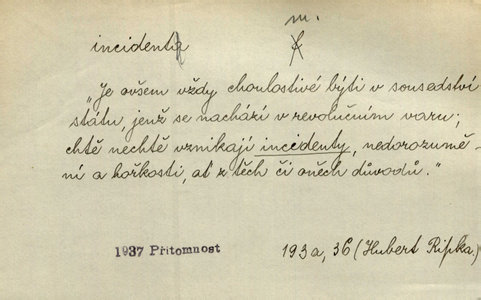 m.
incident
„Je ovšem vždy choulostivé býti v sousedství
státu, jenž se nachází v revolučním varu;
chtě nechtě vznikají incidenty, nedorozumě-
ní a hořkosti, ať z těch či oněch důvodů."
1937 Přítomnost 193a, 36 (Hubert Ripka.)